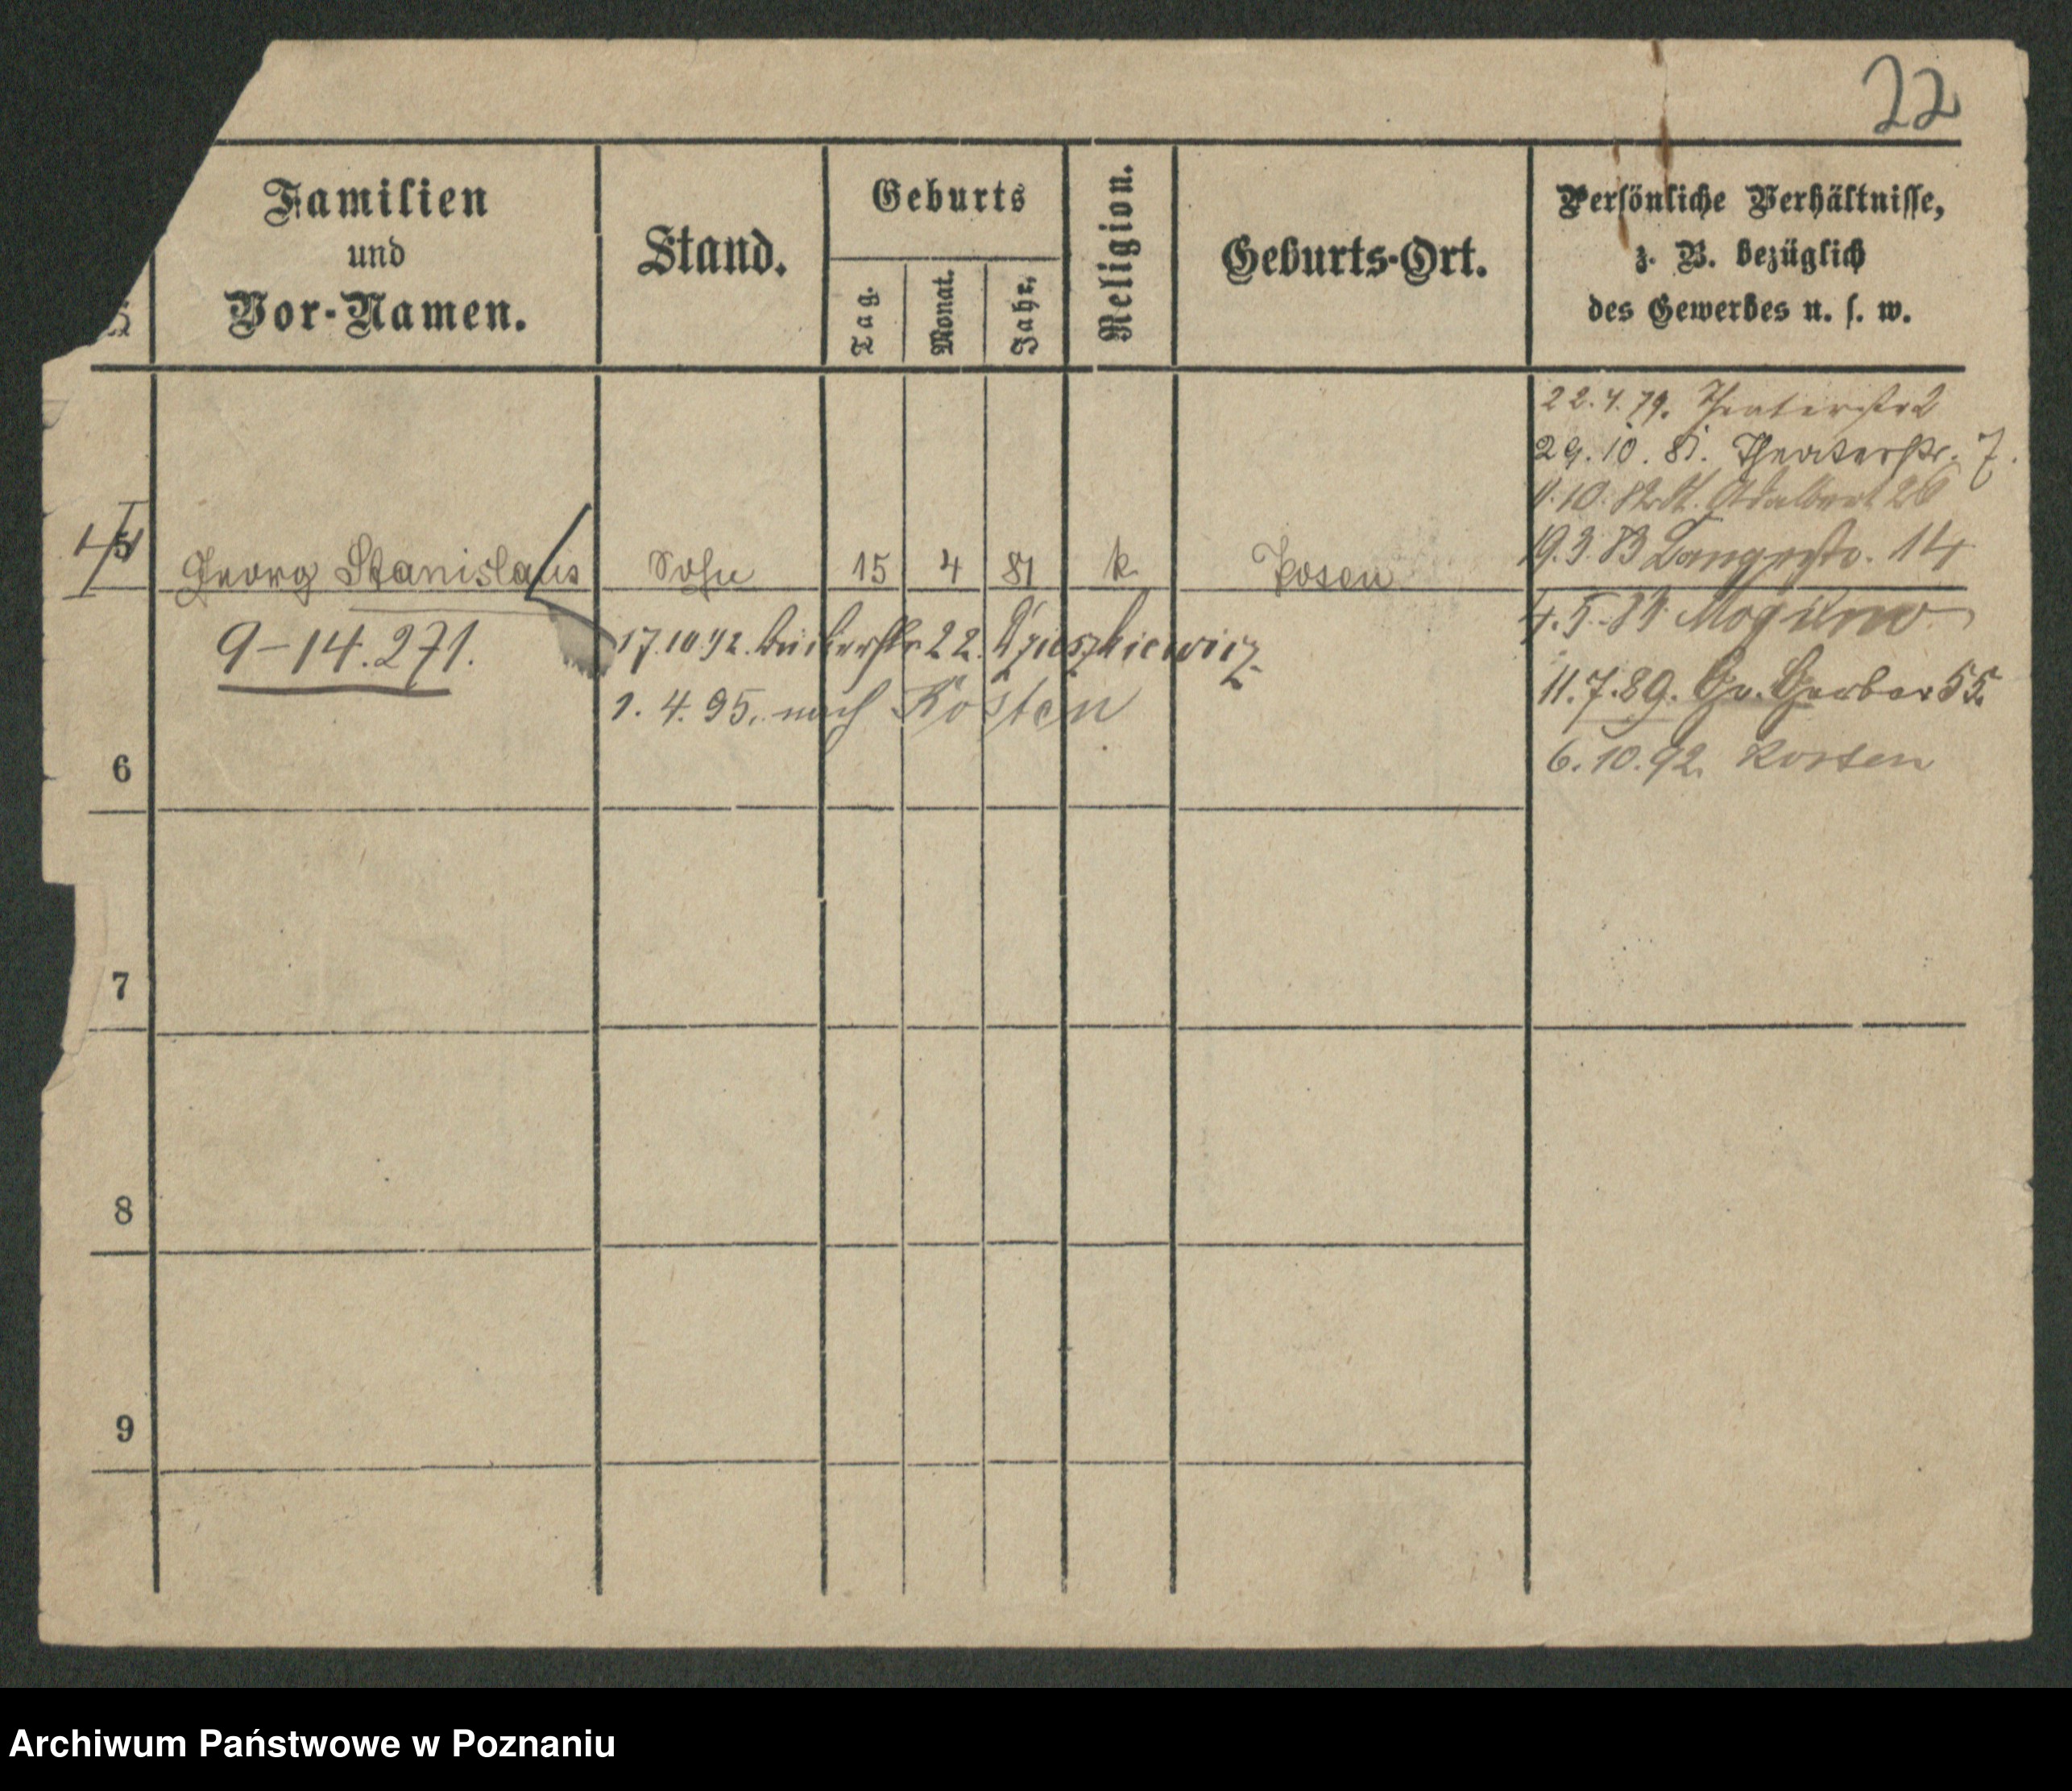 22
Familien
und
Vor-Namen.
Stand.
Geburts
Tag.
Monat.
Jahr.
Religion.
Geburts-Ort.
Persönliche Verhältnisse,
z. B. bezüglich
des Gewerbes u. s. w.
22.4.79. Theaterstr 2
29.10.81. Theaterstr. 7.
St. Adalbert 26
19.3.83 Langestr. 14
5 Georg Stanislaus Sohn 15 4 81 k. Posen
4.5.84 Mogilno
9-14.271.
17.10.92. Bäckerstr 22.
11.7.89. Gr. Gerber 55.
1.4.95. nach Kosten
6.10.92. Kosten
6
7
8
9
Archiwum Państwowe w Poznaniu